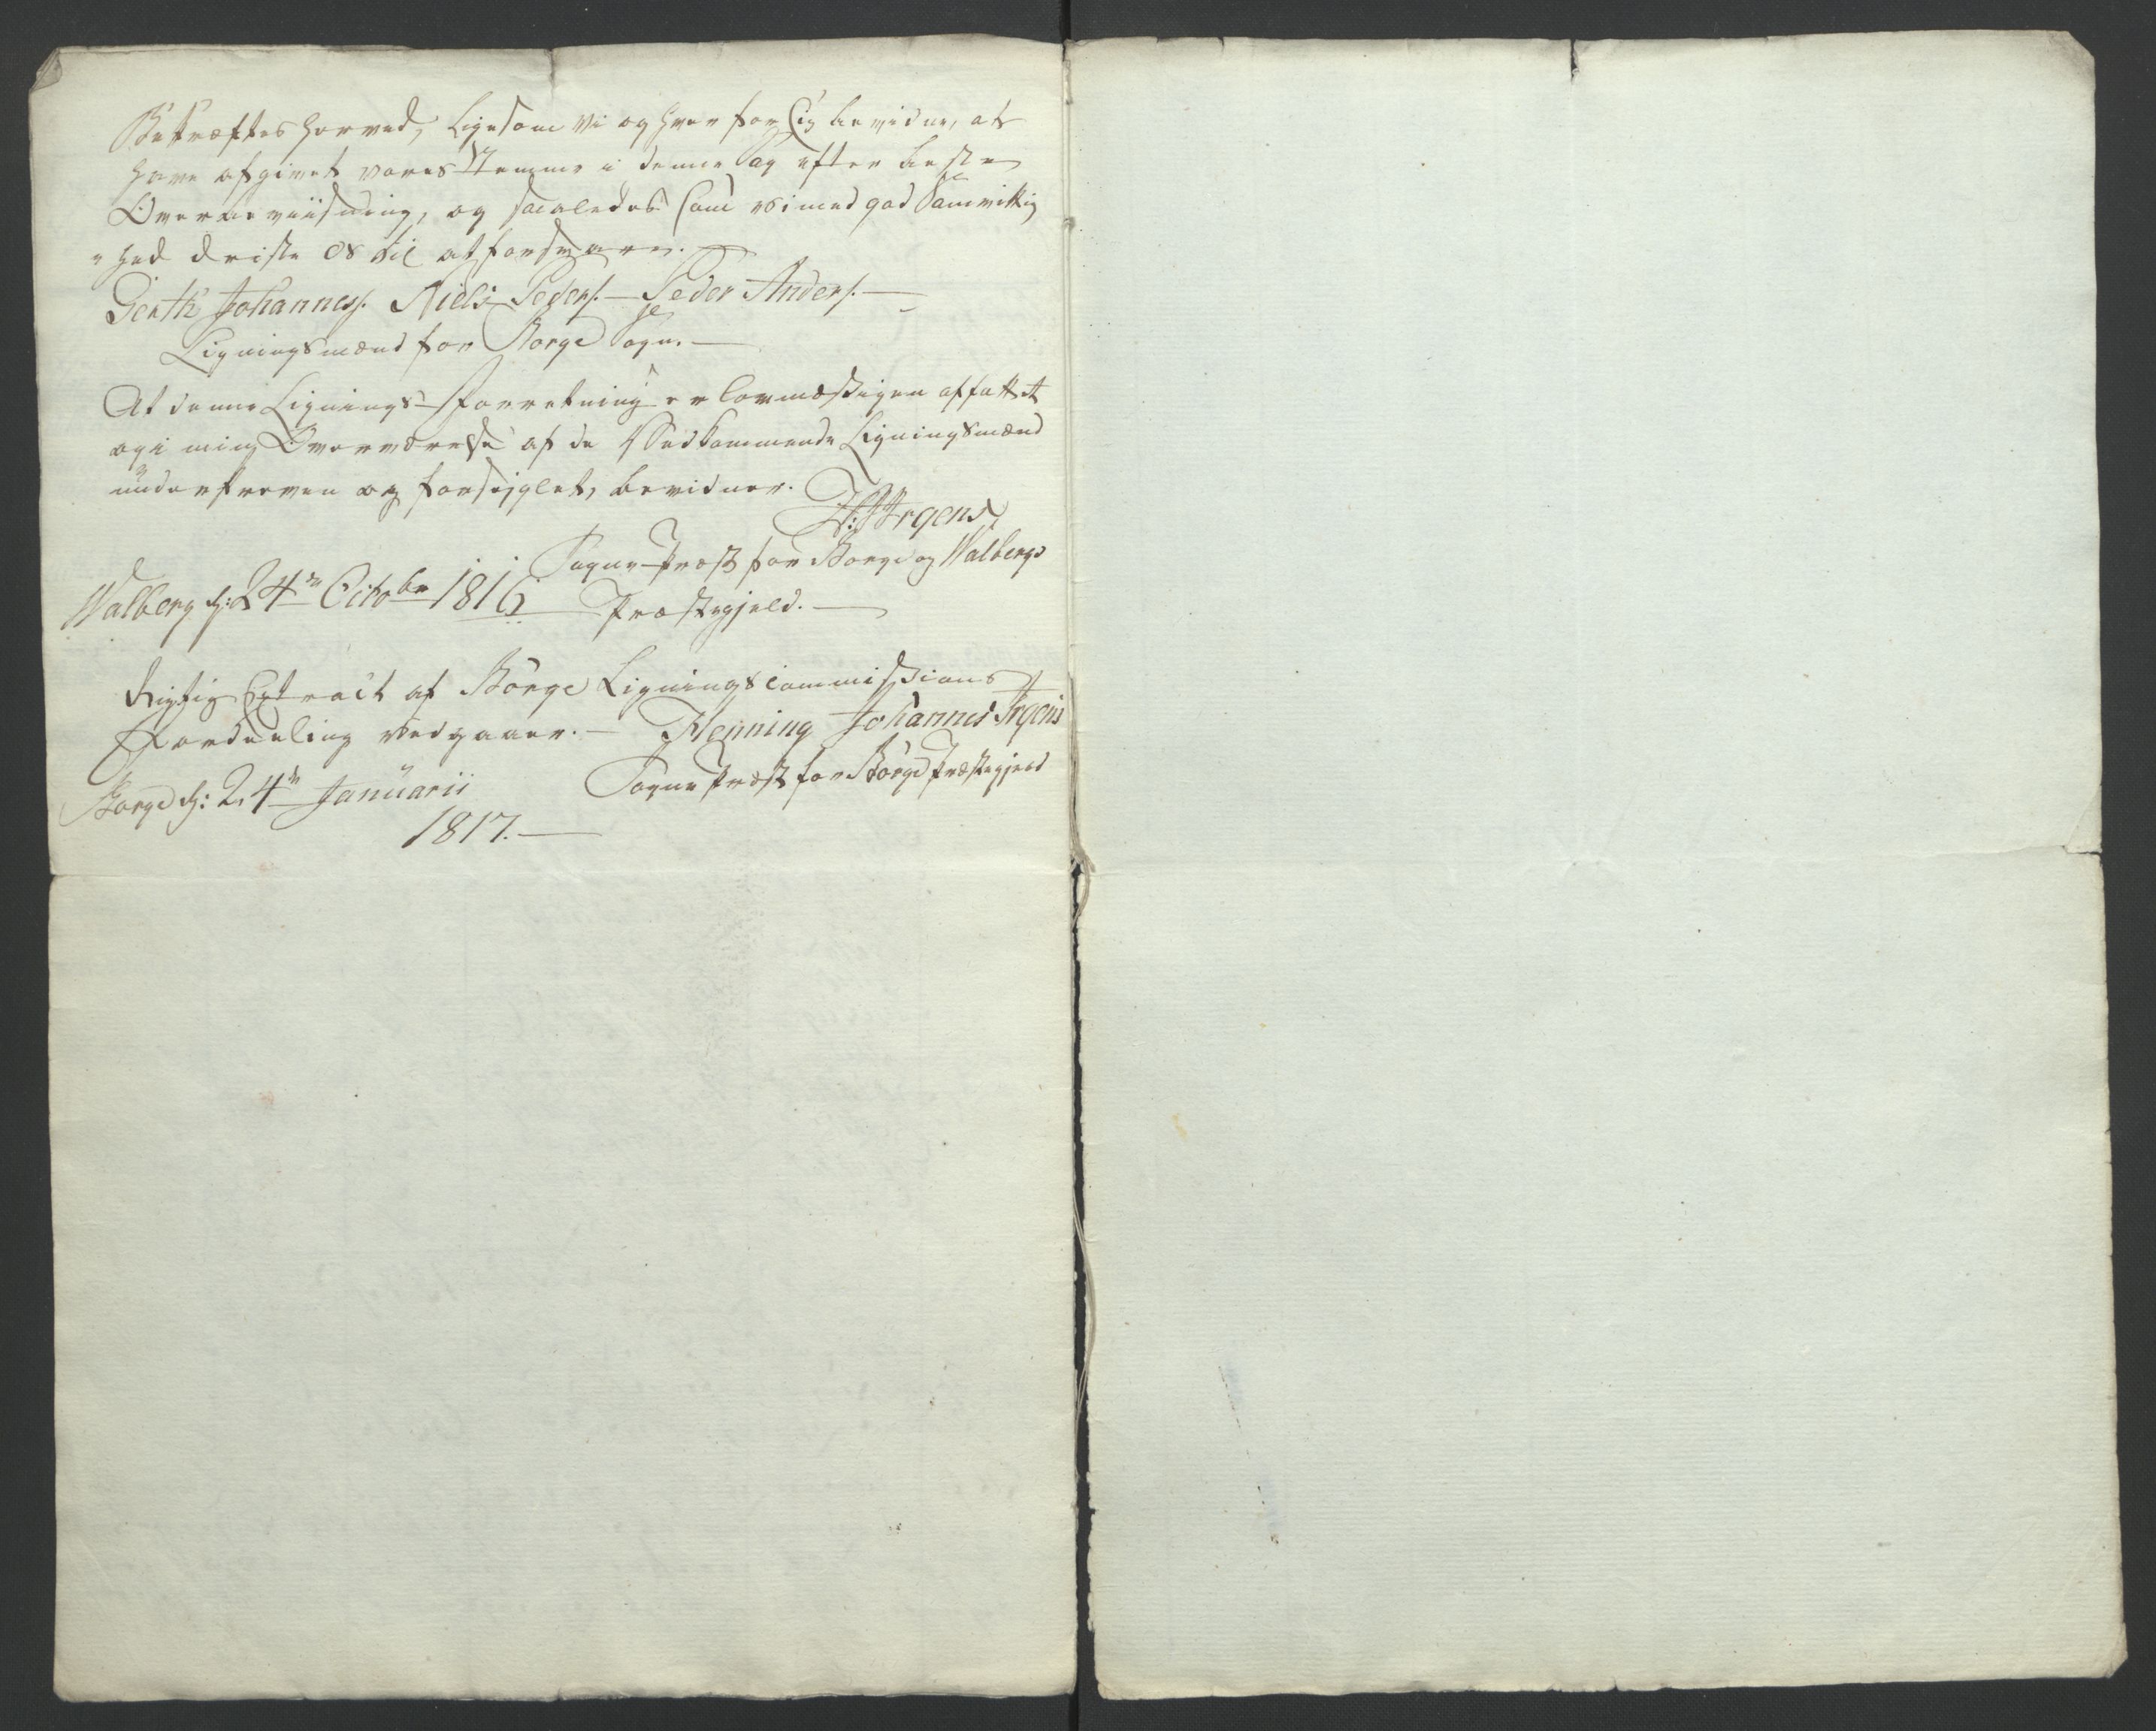 Bekræftes herved, ligesom vi og hver for Sig bevidne, at
have afgivet vores Stemme i denne Sag efter beste
Overbeviisning, og saaledes Som vi med god Samvittig
"hed driste os til at forsvare.
Gerth Johannes/. Niels Peders/. — Peder Anders/. —
Ligningsmænd for Borge Sogn. —
At denne Lignings-Forretning er lovmæssigen affattet
og i min Overværelse af de Vedkommende Ligningsmænd
underskreven og forsiglet, bevidner.
H: J Irgens,
Sogne-Præst for Borge og Walbergs
Walberg d: 24de Octobr 1816 Præstegjeld. —
Rigtig Extract af Borge Ligningscommissions
Fordeeling vedgaaer. — Henning Johannes Irgens
Sogne Præst for Borge Præstegjeld
Borge d: 24de Januarii
1817. —